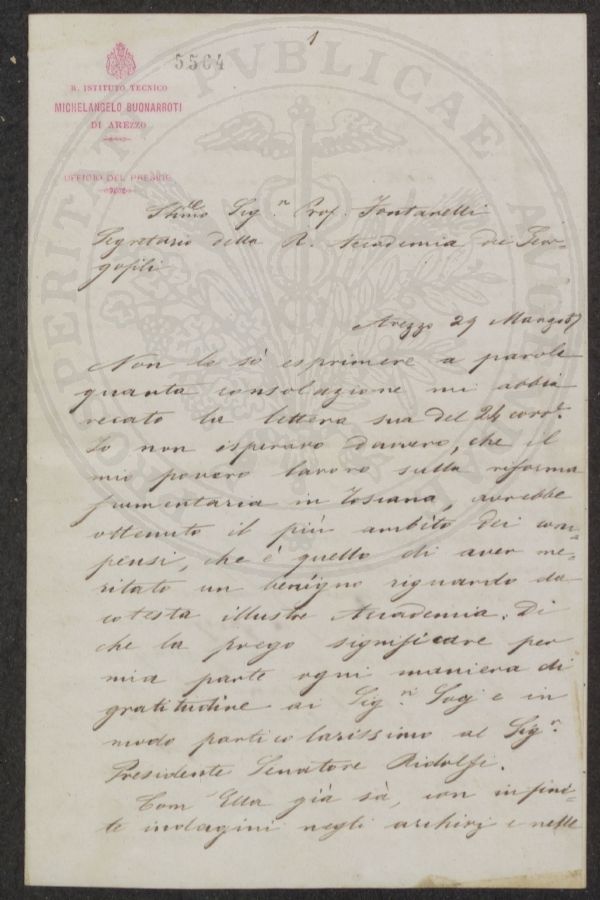 1
5564
R. ISTITUTO TECNICO
MICHELANGELO BUONARROTI
DI AREZZO
UFFICIO DEL PRESIDE
Ill.mo Sig.r Prof. Fontanelli
Segretario della R. Accademia dei Geor-
gofili
Arezzo 29 Marzo
Non le sò esprimere a parole
quanta consolazione mi abbia
recato la lettera sua del 24 corr.e
Io non isperavo davvero, che il
mio povero lavoro sulla riforma
frumentaria in Toscana, avrebbe
ottenuto il più ambito dei com-
pensi, che è quello di aver me-
ritato un benigno riguardo da
cotesta illustre Accademia. Di
che la prego significare per
mia parte ogni maniera di
gratitudine ai Sig.ri Socj e in
modo particolarissimo al Sig.r
Presidente Senatore Ridolfi.
Com' Ella già sà, con infini-
te indagini negli archivj e nelle
PROSPERITATI PVBLICAE AVGENDAE